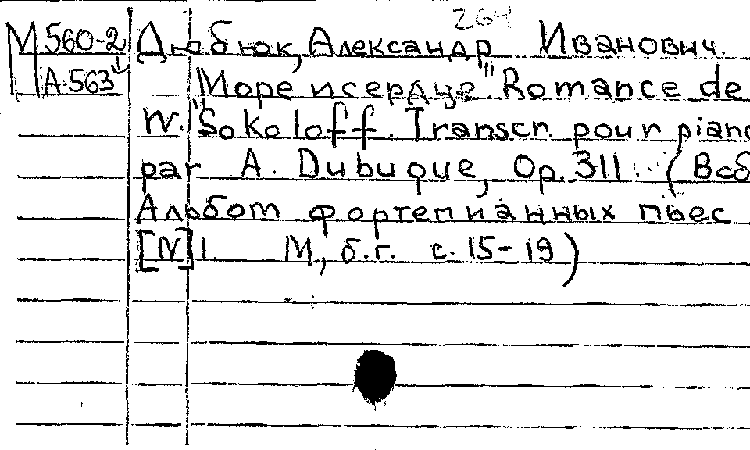 264
М 560-2 Дюбюк, Александр Иванович.
А.563 "Море и сердце" Romance de
N. Sokoloff. Transcr. pour piano
par A. Dubuque, Op. 311. (В сб
Альбом фортепианных пьес
[N] 1. М., б.г. с. 15-19)